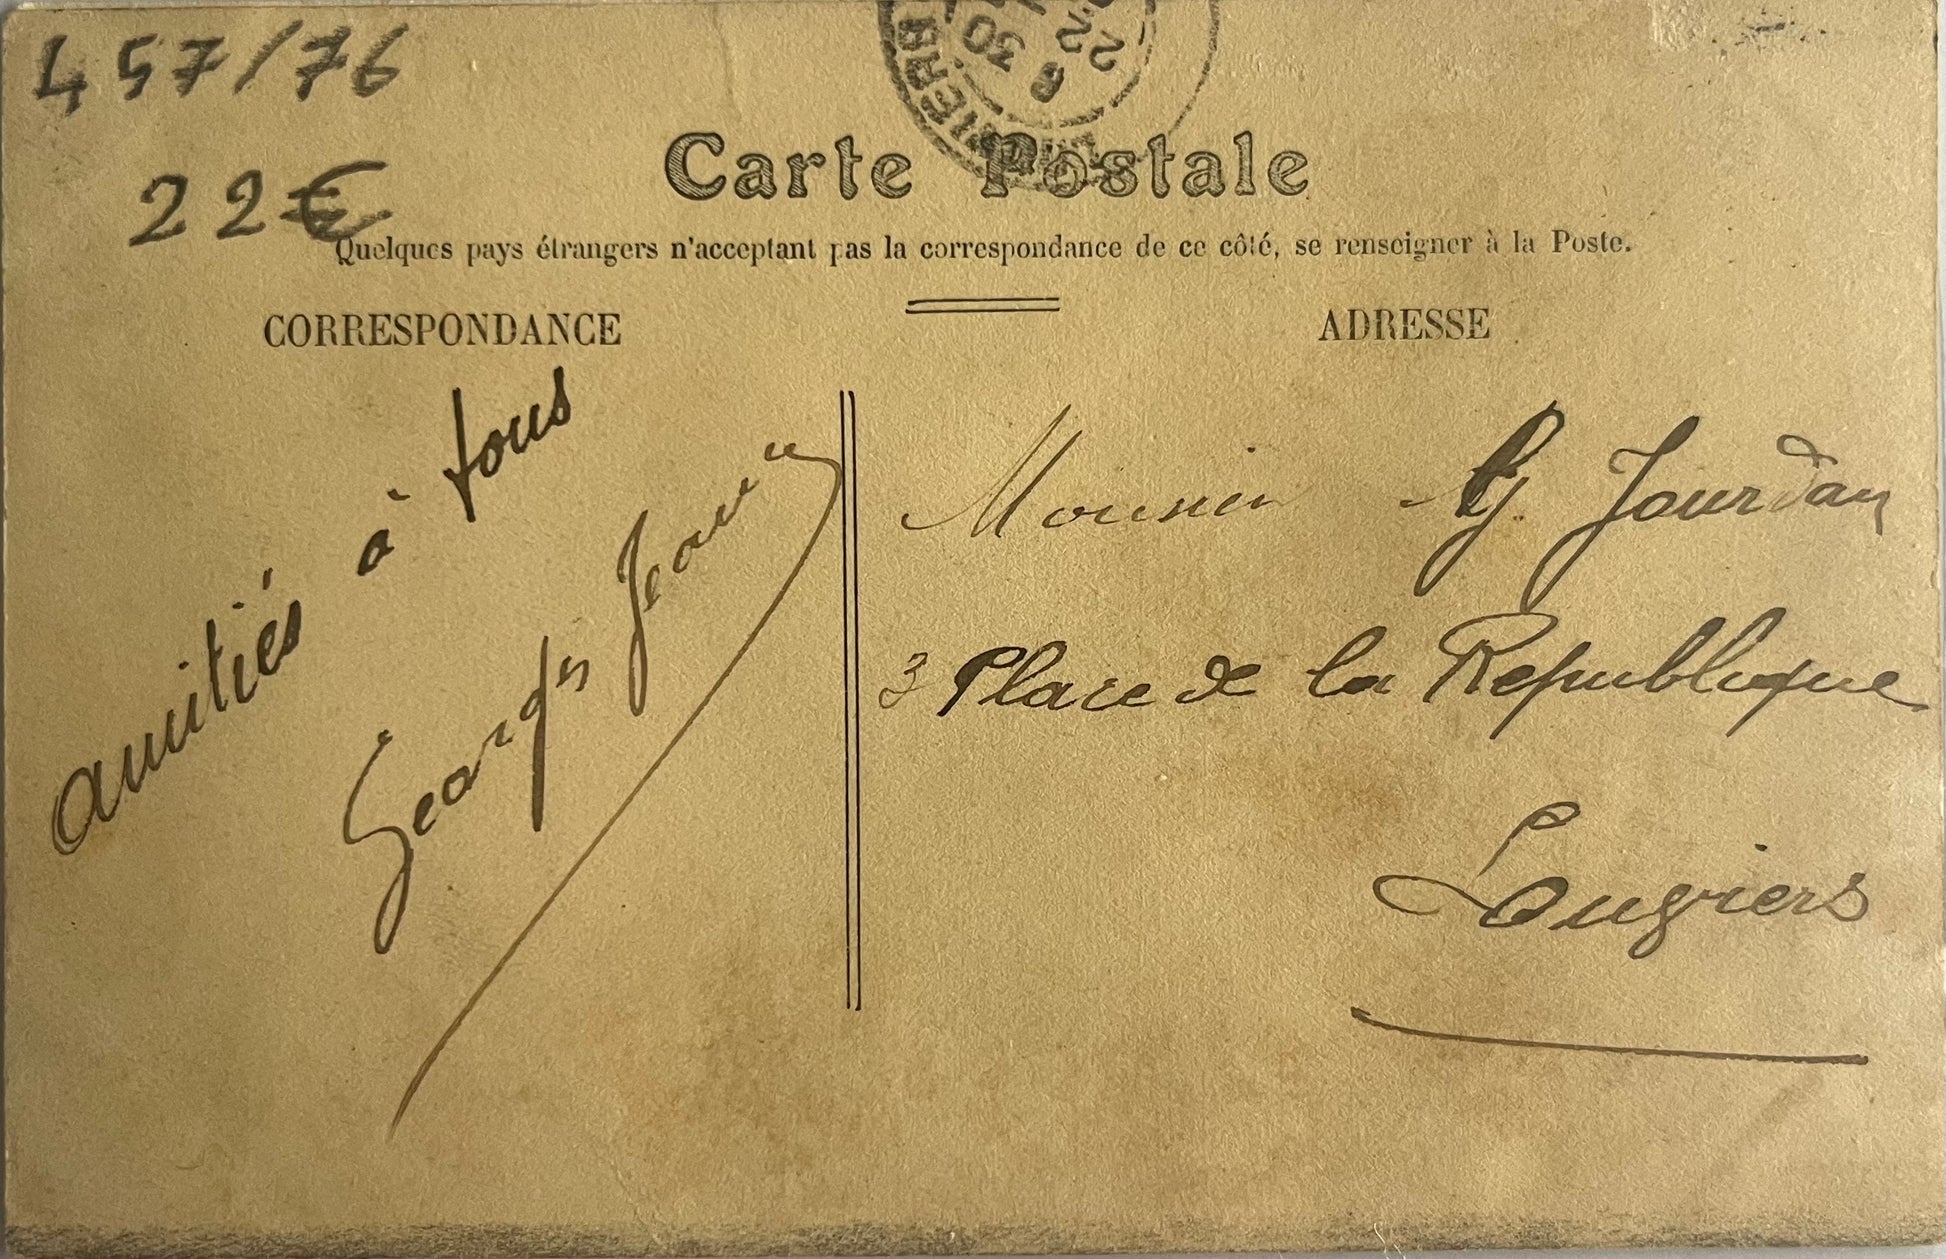 457/76
22€
Carte Postale
Quelques pays étrangers n'acceptant pas la correspondance de ce côté, se renseigner à la Poste.
CORRESPONDANCE
ADRESSE
amitiés à tous
Georges
Monsieur G Jourdan
3 Place de la Republique
Louviers